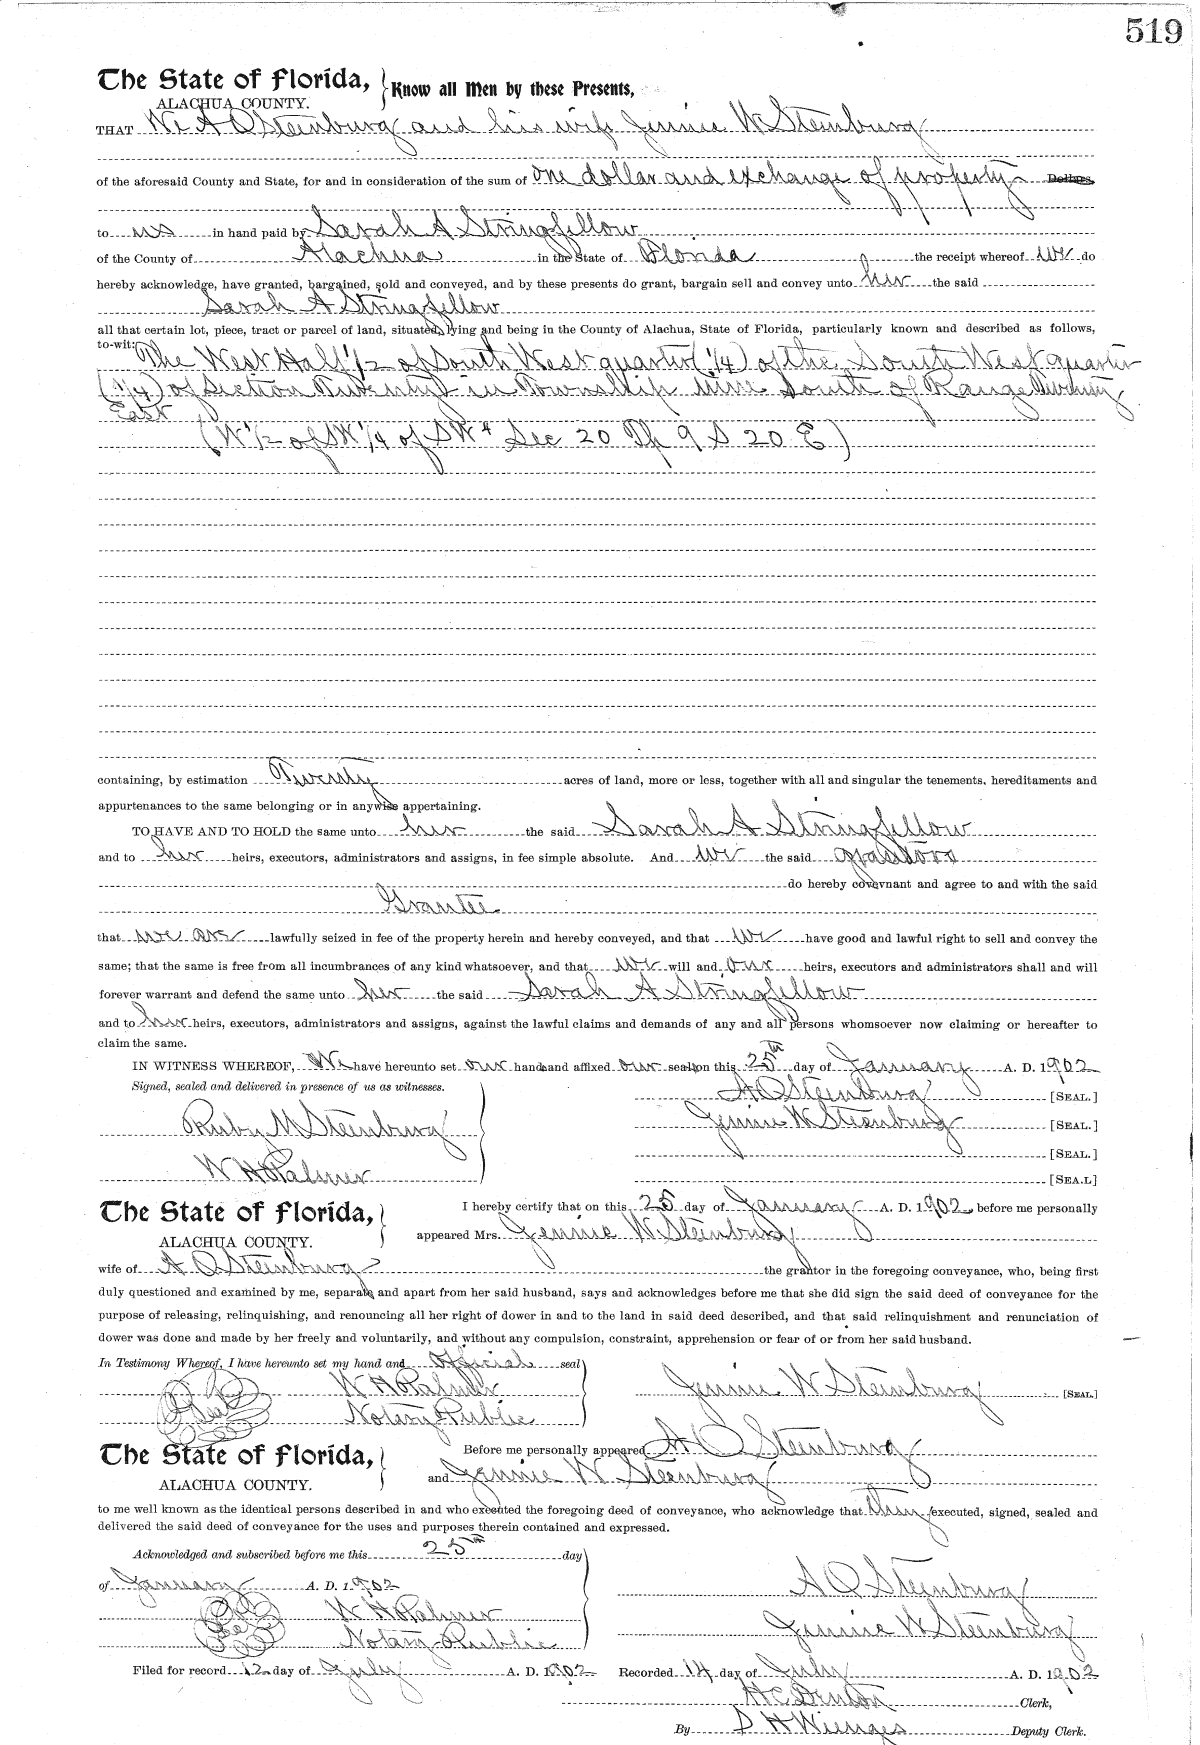 519
The State of Florida, Know all Men by these Presents,
ALACHUA COUNTY.
THAT We A O Steenburg and his wife Jennie W Steenburg
of the aforesaid County and State, for and in consideration of the sum of one dollar and exchange of property Dollars
to us in hand paid by Sarah A Stringfellow
of the County of Alachua in the State of Florida the receipt whereof we do
hereby acknowledge, have granted, bargained, sold and conveyed, and by these presents do grant, bargain sell and convey unto her the said
Sarah A Stringfellow
all that certain lot, piece, tract or parcel of land, situated, lying and being in the County of Alachua, State of Florida, particularly known and described as follows,
to-wit: The West Half 1/2 of South West quarter (1/4) of the South West quarter
(1/4) of Section Twenty in Township nine South of Range Twenty
East
(W 1/2 of SW 1/4 of SW 4 Sec 20 Tp 9 S 20 E)
containing, by estimation Twenty acres of land, more or less, together with all and singular the tenements, hereditaments and
appurtenances to the same belonging or in anywise appertaining.
TO HAVE AND TO HOLD the same unto her the said Sarah A Stringfellow
and to her heirs, executors, administrators and assigns, in fee simple absolute. And we the said grantors
do hereby covevnant and agree to and with the said
Grantee
that we are lawfully seized in fee of the property herein and hereby conveyed, and that we have good and lawful right to sell and convey the
same; that the same is free from all incumbrances of any kind whatsoever, and that we will and our heirs, executors and administrators shall and will
forever warrant and defend the same unto her the said Sarah A Stringfellow
and to her heirs, executors, administrators and assigns, against the lawful claims and demands of any and all persons whomsoever now claiming or hereafter to
claim the same.
IN WITNESS WHEREOF, We have hereunto set our hands and affixed our seals on this 25th day of January A. D. 1902
Signed, sealed and delivered in presence of us as witnesses. A O Steenburg [SEAL.]
Jennie W Steenburg [SEAL.]
Ruby M Steenburg
[SEAL.]
W H Palmer [SEA.L]
The State of Florida, I hereby certify that on this 25 day of January A. D. 1902 before me personally
ALACHUA COUNTY. appeared Mrs. Jennie W Steenburg
wife of A O Steenburg the grantor in the foregoing conveyance, who, being first
duly questioned and examined by me, separate and apart from her said husband, says and acknowledges before me that she did sign the said deed of conveyance for the
purpose of releasing, relinquishing, and renouncing all her right of dower in and to the land in said deed described, and that said relinquishment and renunciation of
dower was done and made by her freely and voluntarily, and without any compulsion, constraint, apprehension or fear of or from her said husband.
In Testimony Whereof, I have hereunto set my hand and official seal
W H Palmer Jennie W Steenburg [SEAL]
Seal Notary Public
The State of Florida, Before me personally appeared A O Steenburg
ALACHUA COUNTY. and Jennie W Steenburg
to me well known as the identical persons described in and who executed the foregoing deed of conveyance, who acknowledge that they executed, signed, sealed and
delivered the said deed of conveyance for the uses and purposes therein contained and expressed.
Acknowledged and subscribed before me this 25th day
of January A. D. 1902 A O Steenburg
W H Palmer
Seal Notary Public Jennie W Steenburg
Filed for record 12 day of July A. D. 1902 Recorded 14 day of July A. D. 1902
H C Denton Clerk,
By S H Wienges Deputy Clerk.